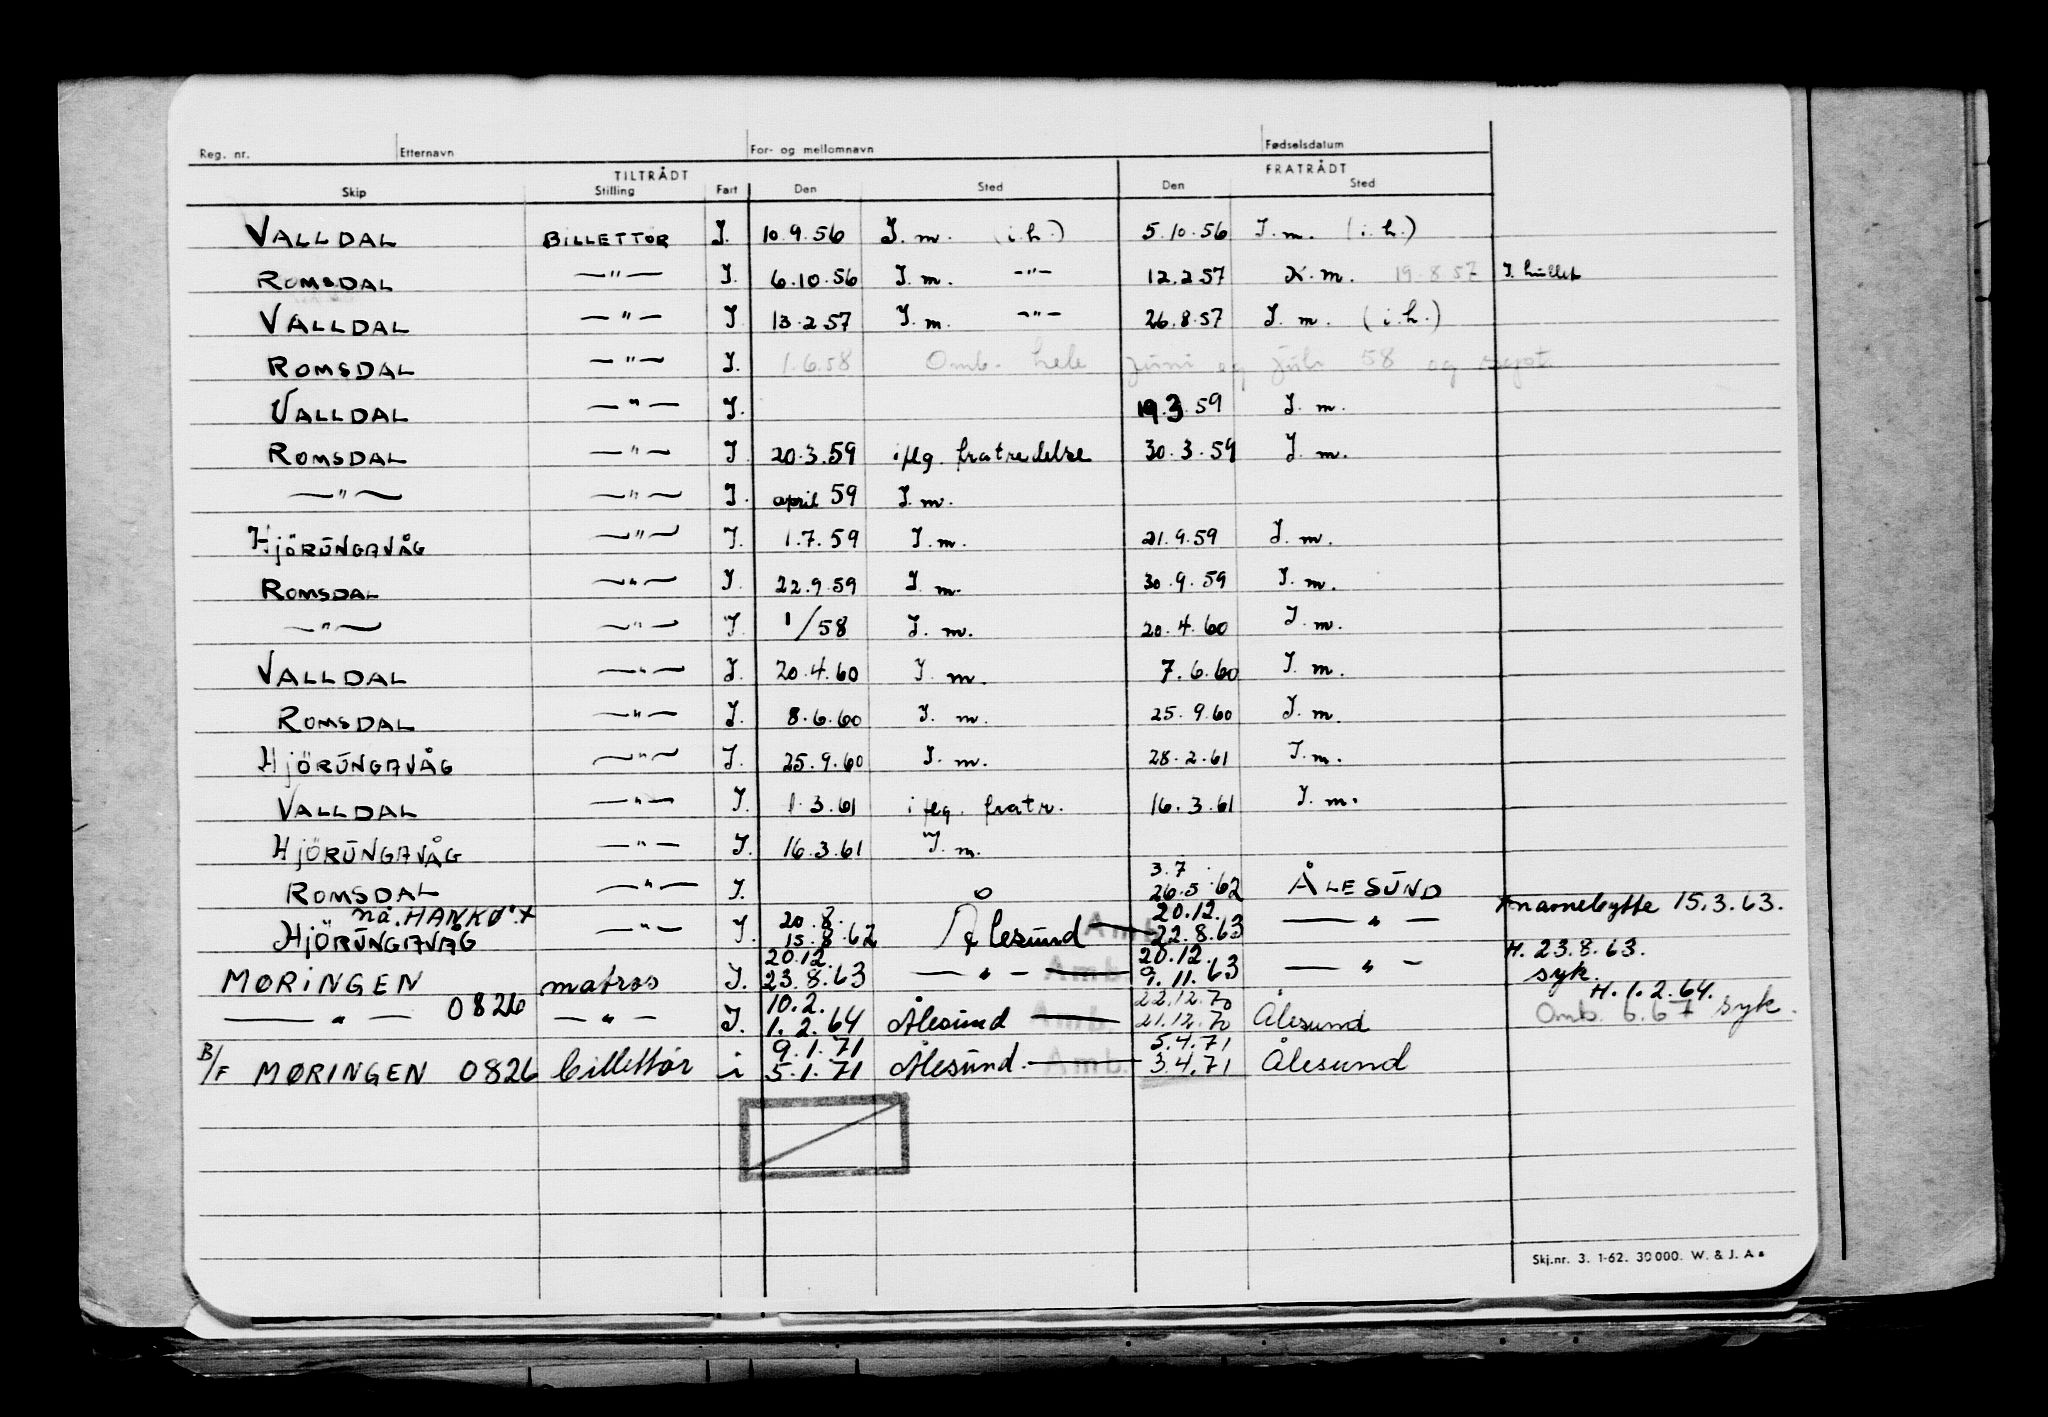 Reg. nr. Etternavn For- og mellomnavn Fødselsdatum
TILTRÅDT FRATRÅDT
Skip Stilling Fart Den Sted Den Sted
VALLDAL BILLETTØR I. 10.9.56 I. m. (i.h.) 5.10.56 I. m. (i.h.)
ROMSDAL —"— I. 6.10.56 I. m. -"- 12.2.57 K.m. 19.8.57
VALLDAL —"— I 13.2.57 I. m. -"- 26.8.57 I. m. (i.h.)
ROMSDAL —"— I. 1.6.58 Omb. hele juni og juli 58 og sept.
VALLDAL —"— I. 19.3.59 I. m.
ROMSDAL —"— I 20.3.59 iflg. fratredelse 30.3.59 I. m.
—"— —"— I. april 59 I. m.
HJÖRÜNGAVÅG —"— I. 1.7.59 I. m. 21.9.59 I. m.
ROMSDAL —"— I. 22.9.59 I. m. 30.9.59 I. m.
—"— —"— I. 1/58 I. m. 20.4.60 I. m.
VALLDAL —"— I. 20.4.60 I. m. 7.6.60 I. m.
ROMSDAL —"— I. 8.6.60 I. m. 25.9.60 I. m.
HJÖRÜNGAVÅG —"— I. 25.9.60 I. m. 28.2.61 I. m.
VALLDAL —"— I. 1.3.61 iflg. fratr. 16.3.61 I. m.
HJÖRÜNGAVÅG —"— I. 16.3.61 I. m.
3.7
ROMSDAL —"— I. 26.5.62 ÅLESÜND
nå HANKØ x 20.8. 20.12. x navnebytte 15.3.63.
HJÖRÜNGAVÅG —"— I. 15.8.62 Ålesund — Amb. 22.8.63 —"—
20.12. 20.12. H. 23.8.63.
MØRINGEN matros I. 23.8.63 —"— — Amb. 9.11.63 —"— syk.
10.2. 22.12.70 H. 1.2.64.
—"— 0826 —"— I. 1.2.64 Ålesund — Amb. 21.12.70 Ålesund Omb. 6.67 syk.
9.1.71 5.4.71
B/F MØRINGEN 0826 billettør i 5.1.71 Ålesund. — Amb. 3.4.71 Ålesund
Skj.nr. 3. 1-62. 30 000. W. & J. A s